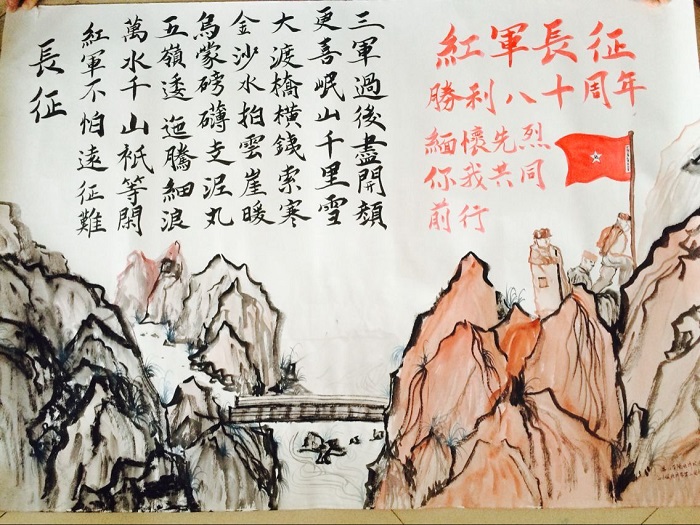 長征
紅軍不怕遠征難
萬水千山祇等閑
五嶺逶迤騰細浪
烏蒙磅礴走泥丸
金沙水拍雲崖暖
大渡橋橫鐵索寒
更喜岷山千里雪
三軍過後盡開顏
紅軍長征
勝利八十周年
緬懷先烈
你我共同
前行